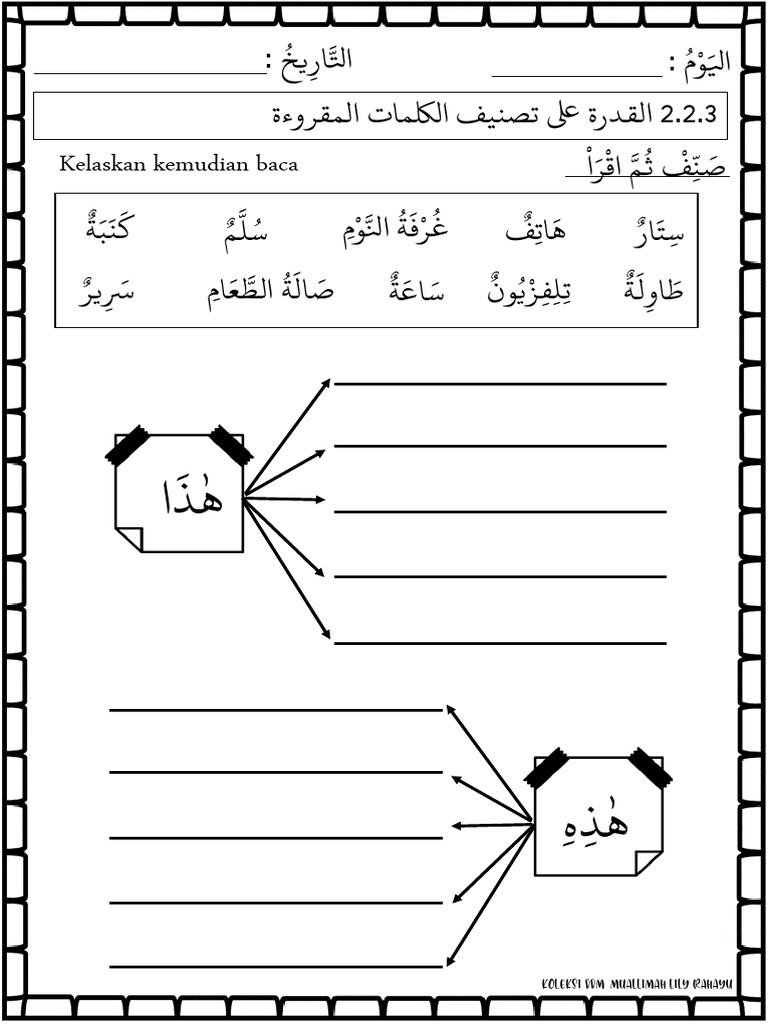 اليَوْمُ : ____________ التَّارِيخُ : ____________
2.2.3 القدرة على تصنيف الكلمات المقروءة
صَنِّفْ ثُمَّ اقْرَأْ Kelaskan kemudian baca
سِتَارٌ هَاتِفٌ غُرْفَةُ النَّوْمِ سُلَّمٌ كَنَبَةٌ
طَاوِلَةٌ تِلِفِزْيُونٌ سَاعَةٌ صَالَةُ الطَّعَامِ سَرِيرٌ
هٰذَا
هٰذِهِ
KOLEKSI BBM MUALLIMAH LILY RAHAYU